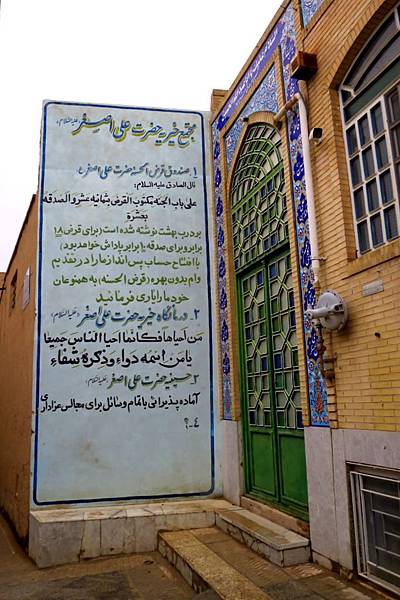 مجتمع خیریه حضرت علی اصغر (علیه السلام)
۱. صندوق قرض الحسنه حضرت علی اصغر (ع)
قال الصادق علیه السلام:
علی باب الجنه مکتوب القرض بثمانیه عشر و الصدقه
بعشرة
بر در بهشت نوشته شده است (برای قرض ۱۸
برابر و برای صدقه ۱۰ برابر پاداش خواهد بود)
با افتتاح حساب پس انداز ما را در تقدیم
وام بدون بهره (قرض الحسنه) به همنوعان
خود ما را یاری فرمائید
۲. درمانگاه خیریه حضرت علی اصغر (علیه السلام)
من احیاها فکانما احیا الناس جمیعا
یا من اسمه دواء و ذکره شفاء
۳. حسینیه حضرت علی اصغر (علیه السلام)
آماده پذیرائی با تمام وسائل برای مجالس عزاداری
۴-؟